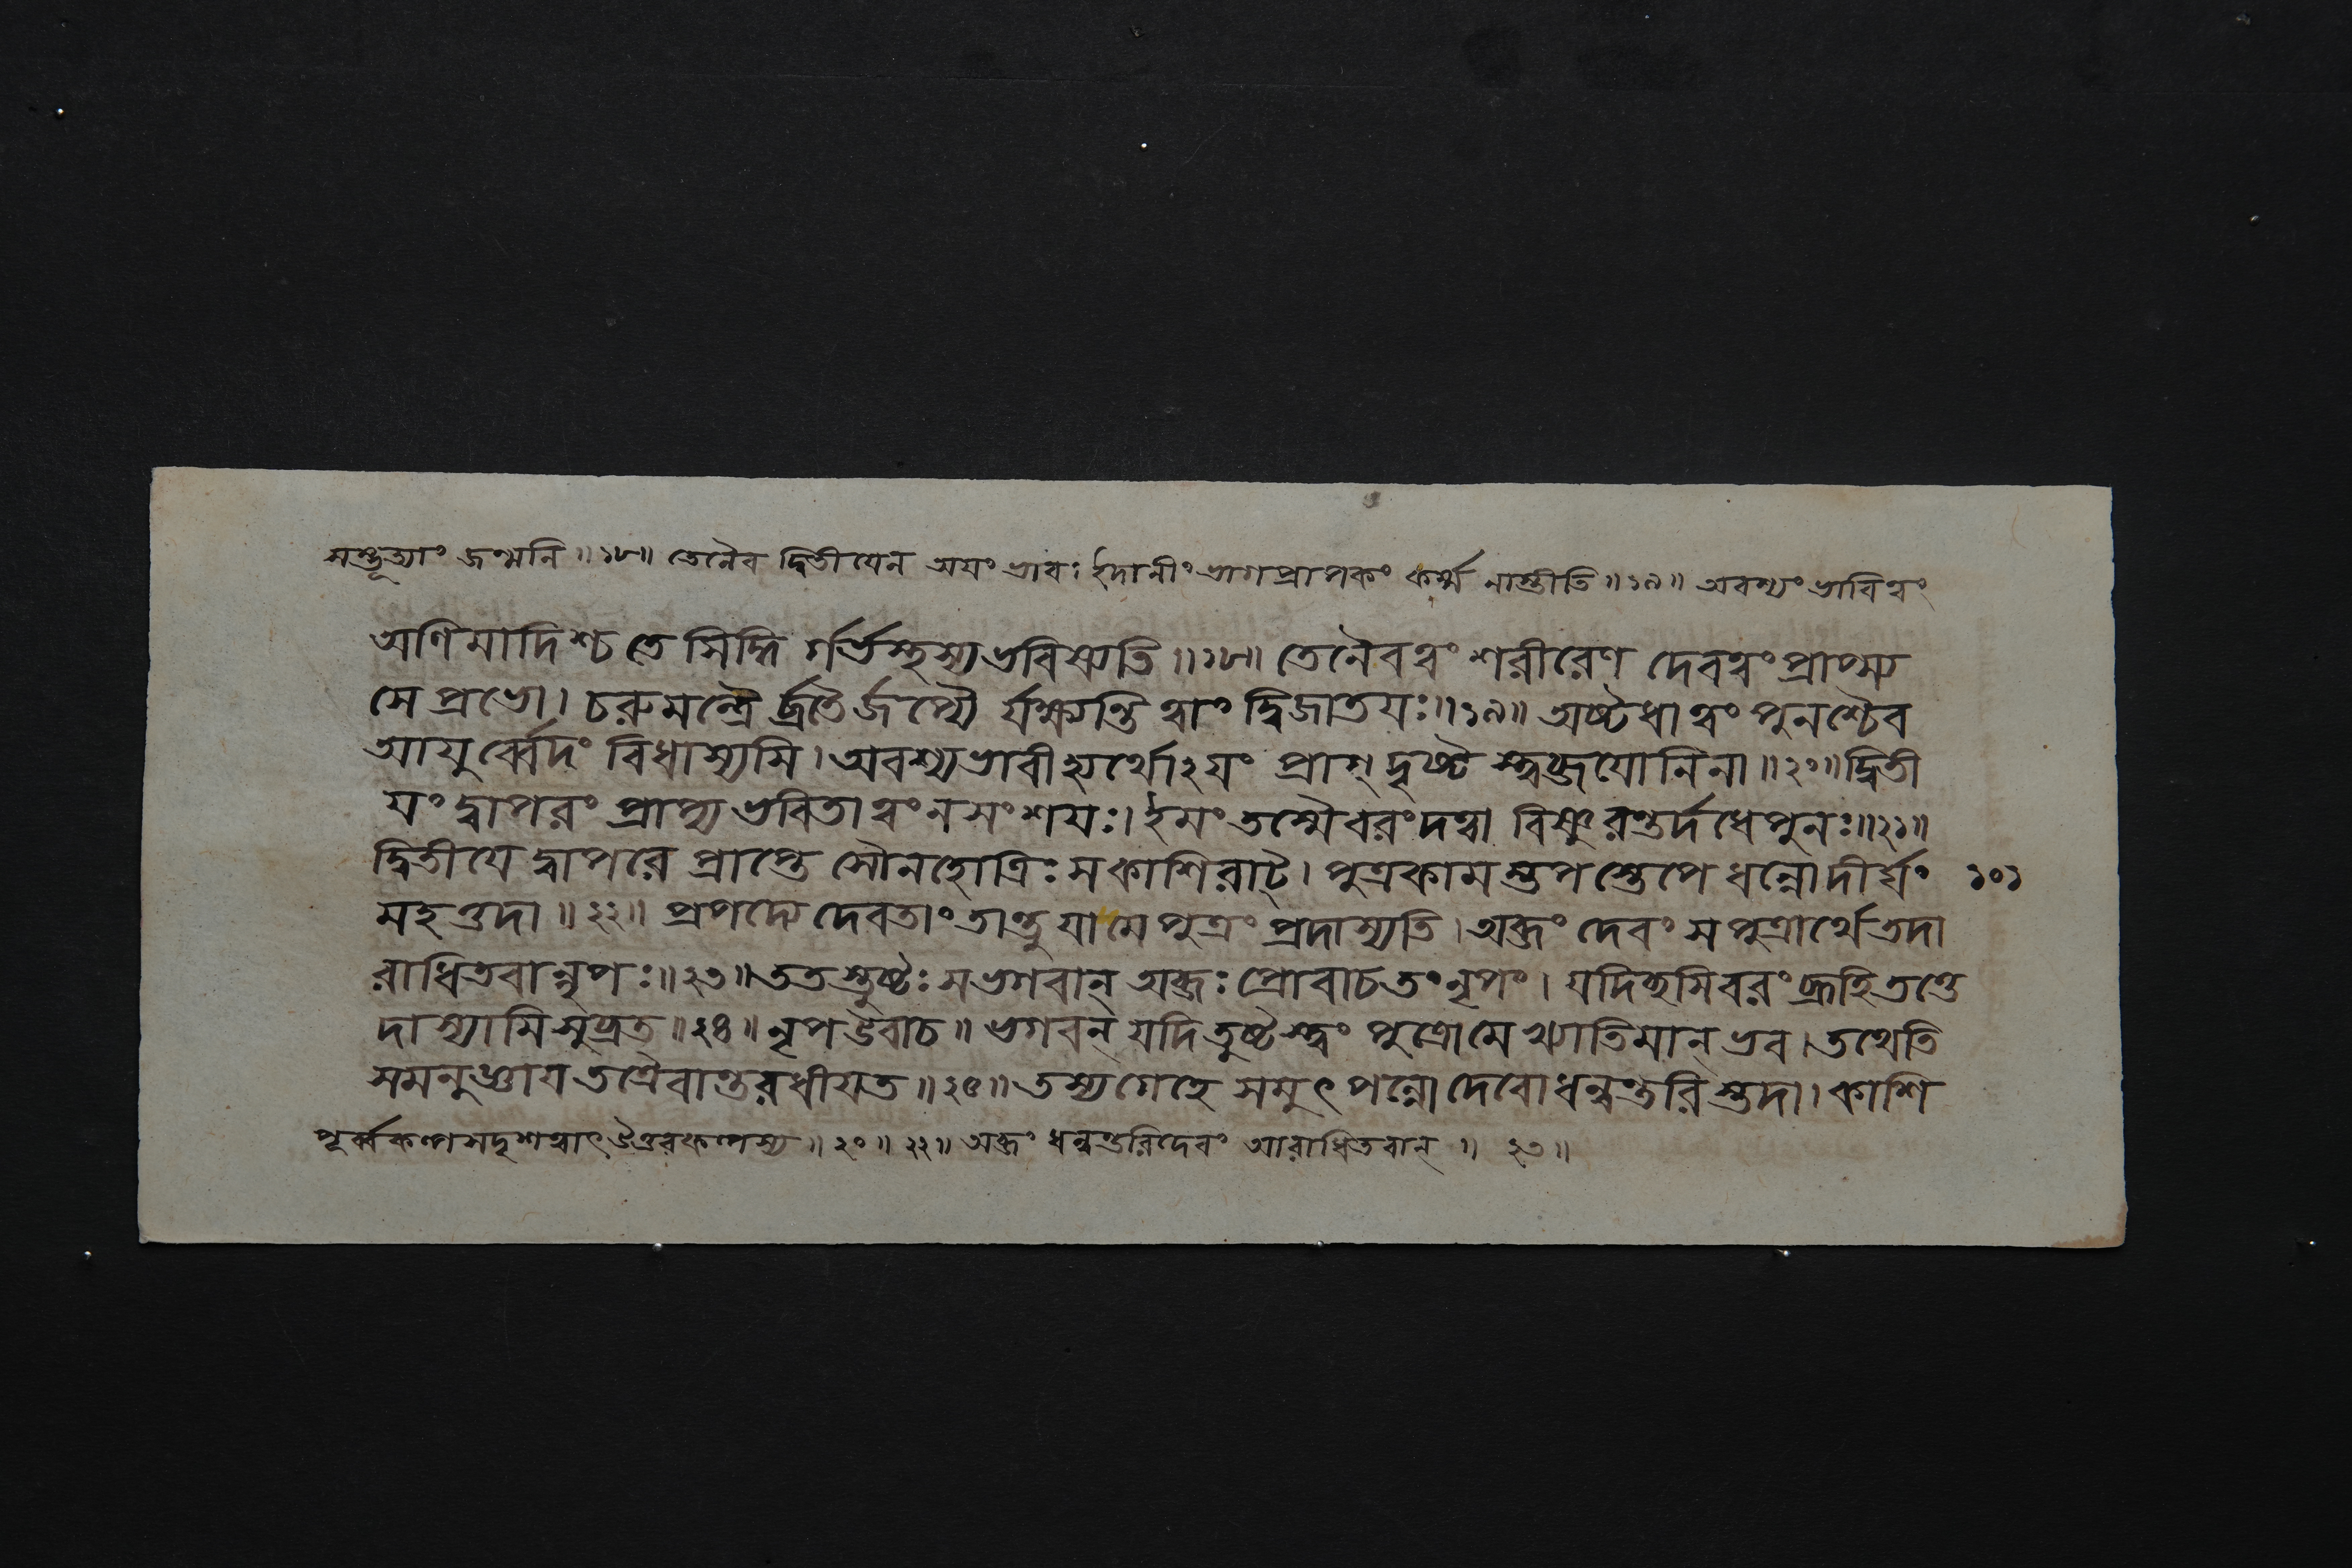 সম্ভূত্যাং জন্মনি ॥ ১৮ ॥ তেনৈব দ্বিতীযেন অযং ভাবঃ ইদানীং ভাগপ্রাপকং কর্ম্ম নাস্তীতি ॥ ১৯ ॥ অবশ্যং ভাবিত্বং
অণিমাদিশ্চ তে সিদ্ধি র্গর্ভস্থস্য ভবিষ্যতি ॥ ১৮ ॥ তেনৈব ত্বং শরীরেণ দেবত্বং প্রাপ্স্য
সে প্রভো । চরুমন্ত্রৈ র্ব্রতৈ র্জপ্যৈ র্যক্ষ্যন্তি ত্বাং দ্বিজাতযঃ ॥ ১৯ ॥ অষ্টধা ত্বং পুনশ্চৈব
আযুর্ব্বেদং বিধাস্যসি । অবশ্যভাবী হ্যর্থোঽযং প্রাগ্ দৃষ্ট স্ত্বব্জযোনিনা ॥ ২০ ॥ দ্বিতী
যং দ্বাপরং প্রাপ্য ভবিতা ত্বং ন সংশযঃ । ইমং তস্মৈ বরং দত্বা বিষ্ণুরন্তর্দধে পুনঃ ॥ ২১ ॥
দ্বিতীযে দ্বাপরে প্রাপ্তে সৌনহোত্রিঃ স কাশিরাট্ । পুত্রকাম স্তপ স্তেপে ধন্বো দীর্ঘং ১০১
মহত্তদা ॥ ২২ ॥ প্রপদ্যে দেবতাং তান্তু যা মে পুত্রং প্রদাস্যতি । অব্জং দেবং স পুত্রার্থে তদা
রাধিতবান্নৃপঃ ॥ ২৩ ॥ ততস্তুষ্টঃ স ভগবান্ অব্জঃ প্রোবাচ তং নৃপং । যদিচ্ছসি বরং ব্রূহি তত্তে
দাস্যামি সুব্রত ॥ ২৪ ॥ নৃপ উবাচ ॥ ভগবন্ যদি তুষ্টস্ত্বং পুত্রো মে খ্যাতিমান্ ভব । তথেতি
সমনুজ্ঞায তত্রৈবান্তরধীযত ॥ ২৫ ॥ তস্য গেহে সমুৎপন্নো দেবো ধন্বন্তরি স্তদা । কাশি
পূর্ব্বকল্পসদৃশত্বাৎ উত্তরকল্পস্য ॥ ২০ ॥ ২২ ॥ অব্জং ধন্বন্তরিদেবং আরাধিতবান্ ॥ ২৩ ॥